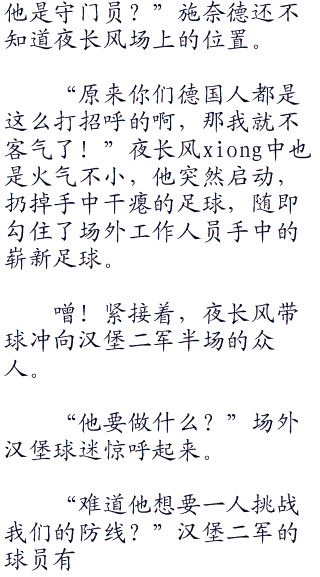 他是守门员？”施奈德还不
知道夜长风场上的位置。
“原来你们德国人都是
这么打招呼的啊，那我就不
客气了！”夜长风xiong中也
是火气不小，他突然启动，
扔掉手中干瘪的足球，随即
勾住了场外工作人员手中的
崭新足球。
噌！紧接着，夜长风带
球冲向汉堡二军半场的众
人。
“他要做什么？”场外
汉堡球迷惊呼起来。
“难道他想要一人挑战
我们的防线？”汉堡二军的
球员有